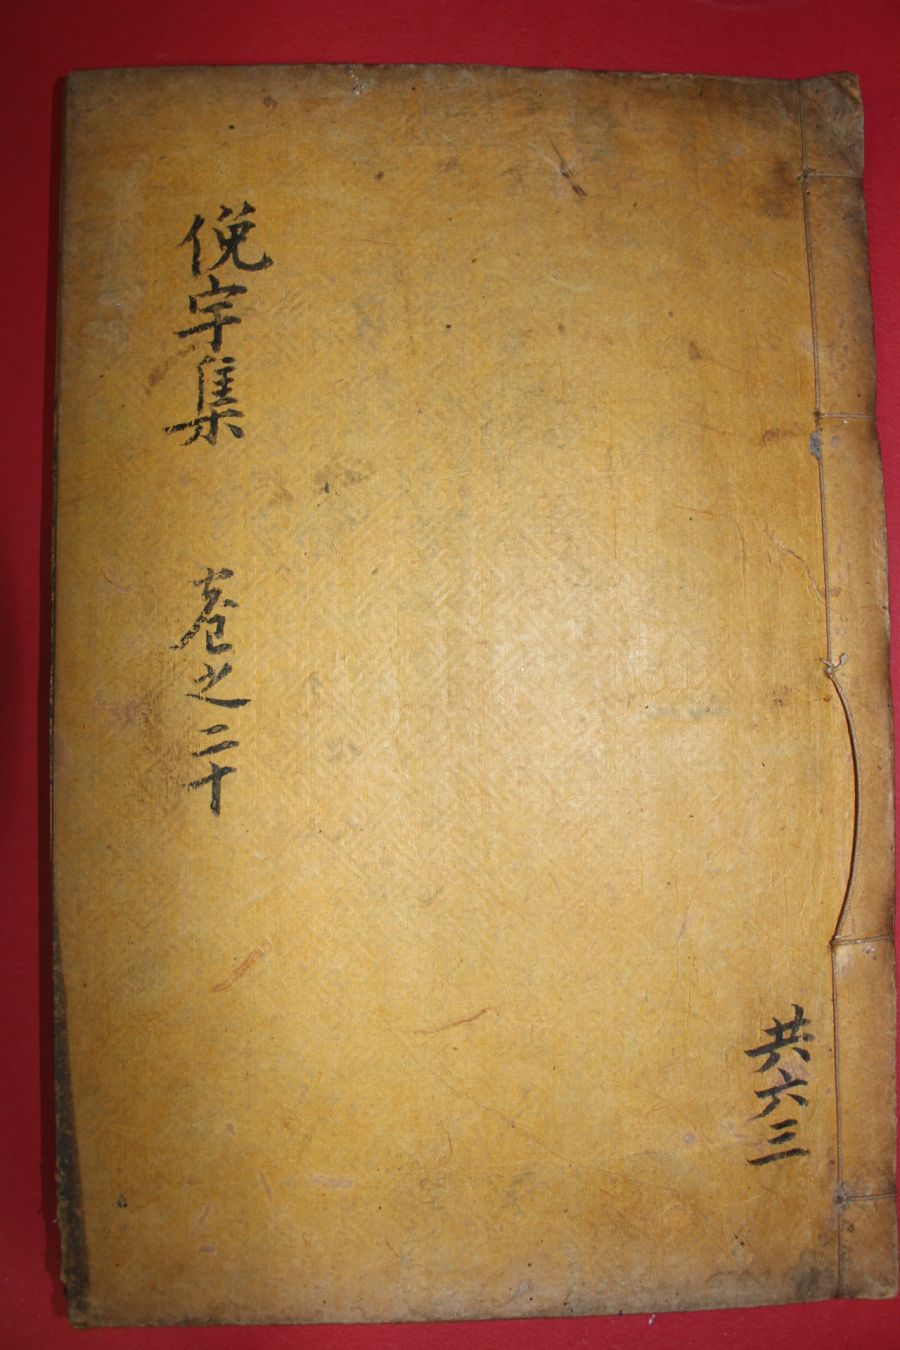 俛宇集 卷之二十
共六三